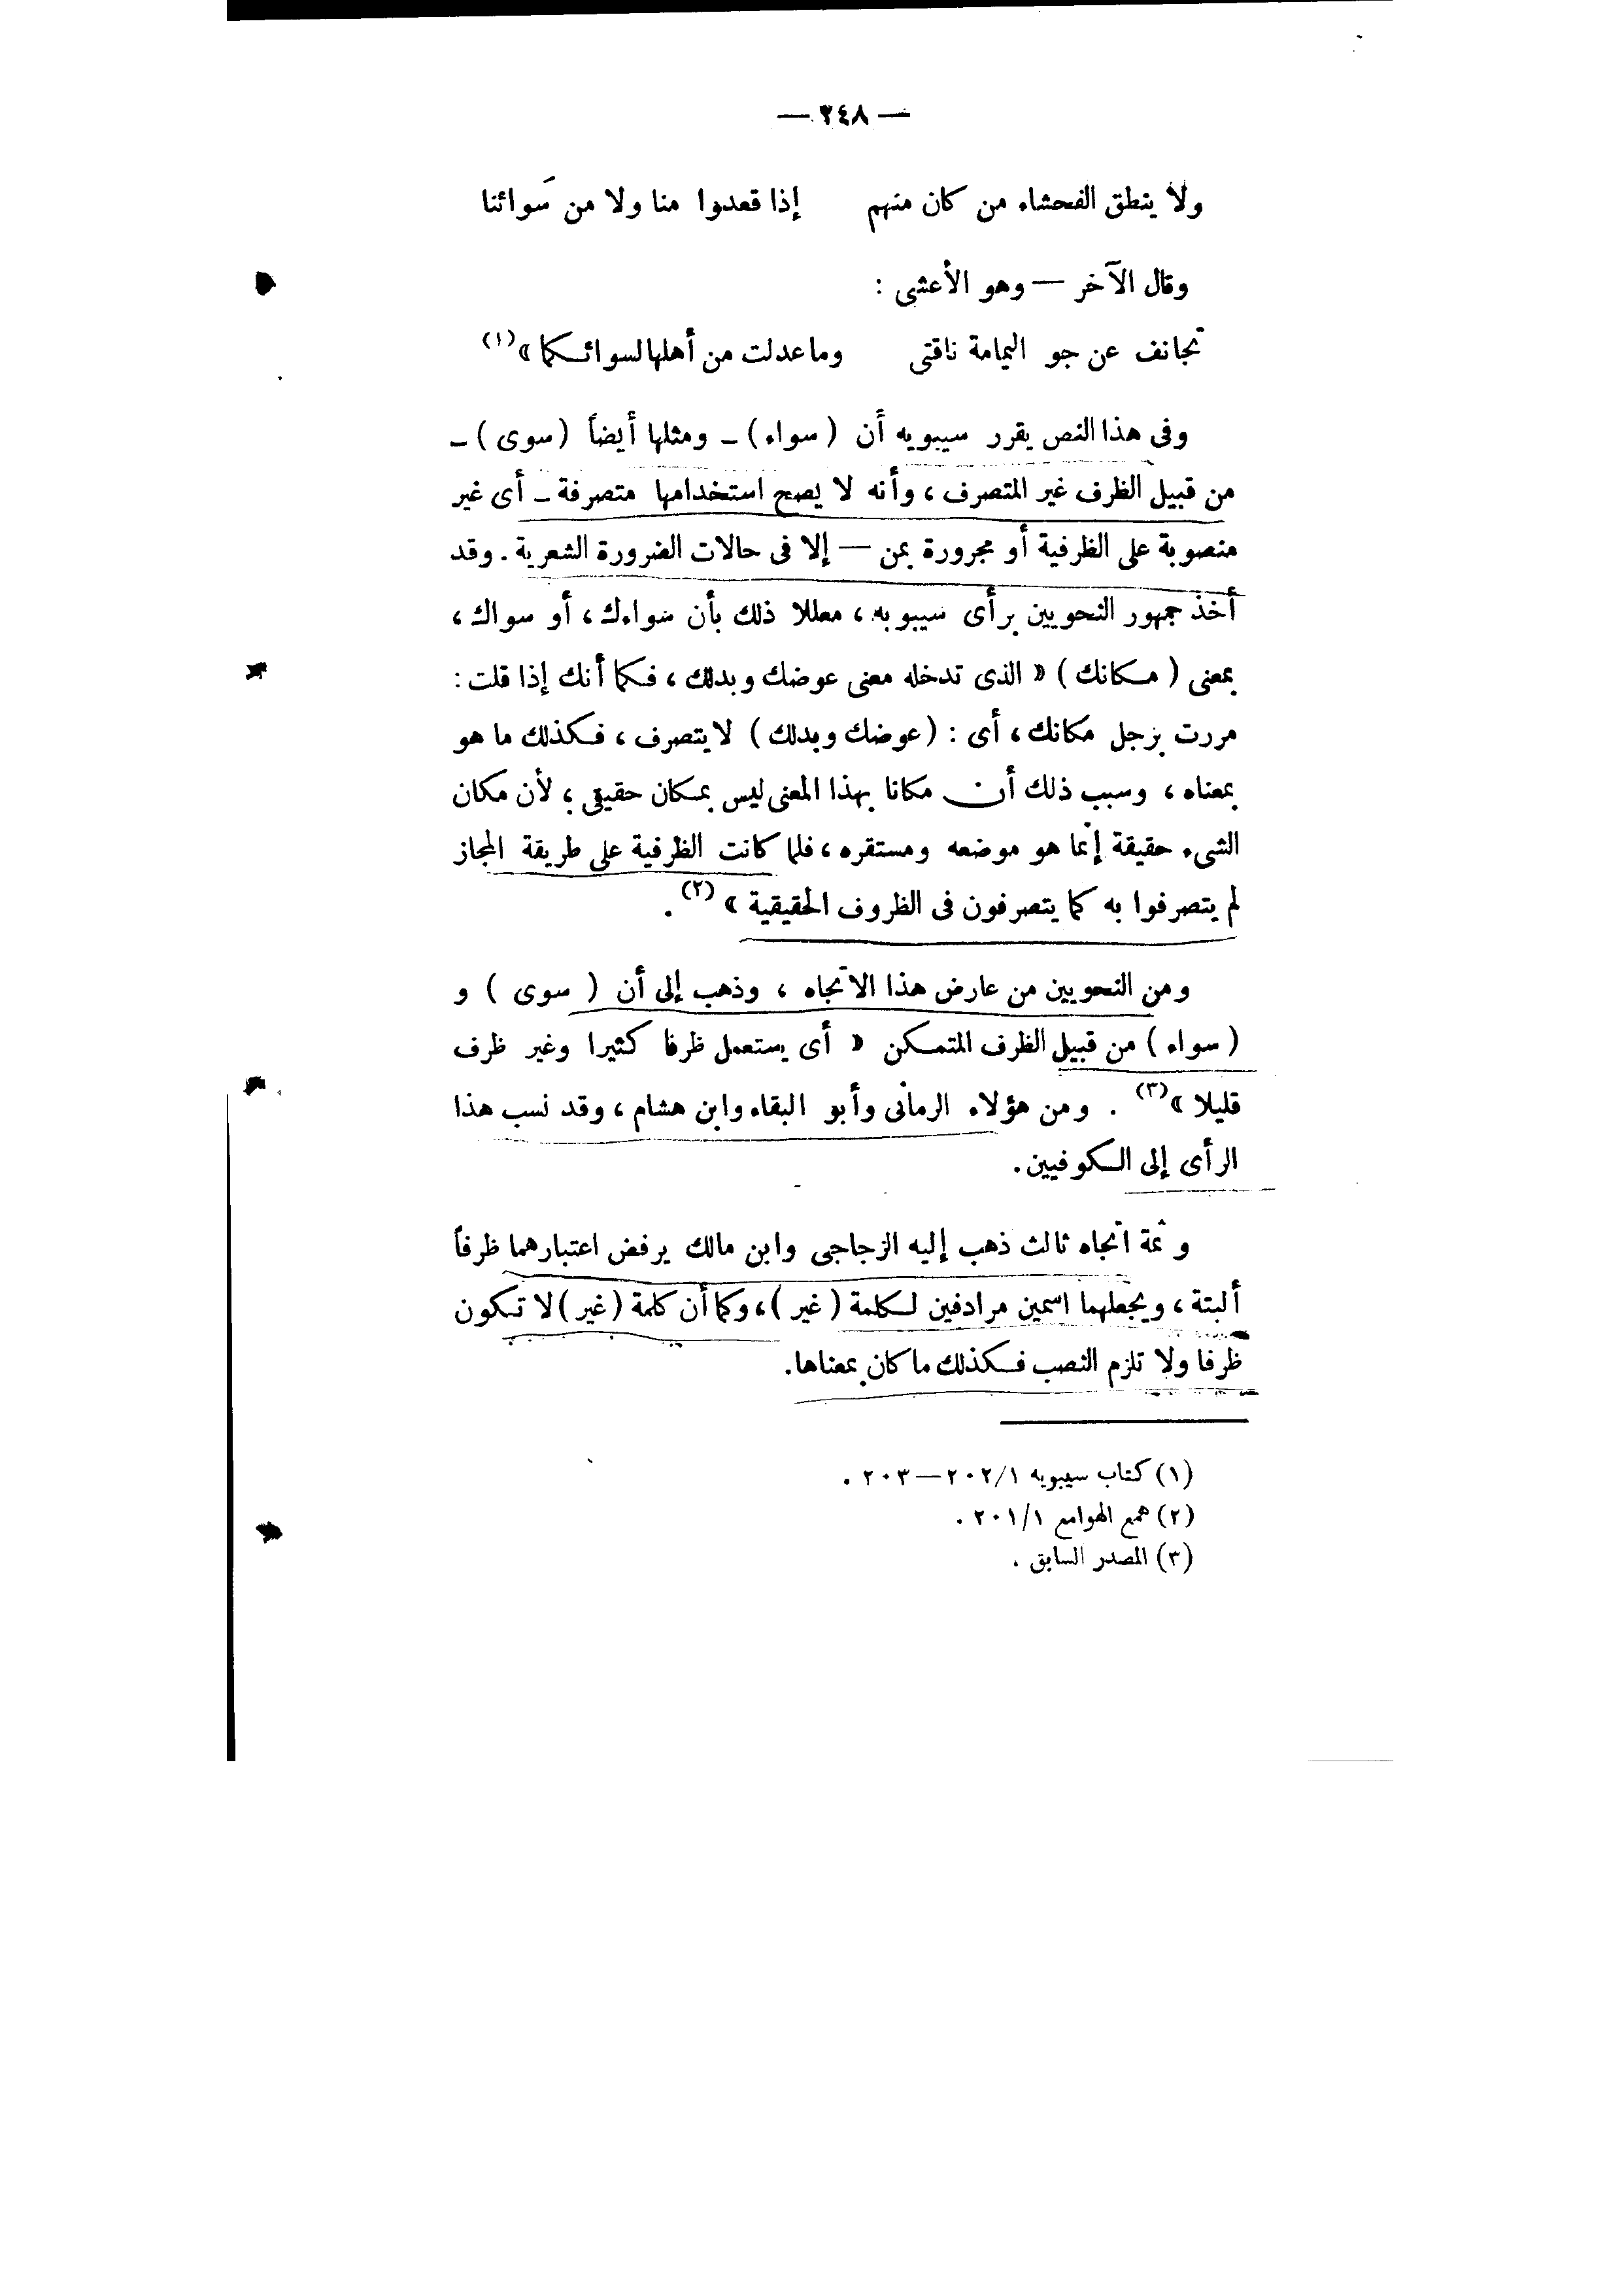 — ٢٤٨ —
ولا ينطق الفحشاء من كان منهم إذا قعدوا منا ولا من سَوائنا
وقال الآخر — وهو الأعشى :
تجانف عن جو اليمامة ناقتى وما عدلت من أهلها لسوائكما » (١)
وفى هذا النص يقرر سيبويه أن ( سواء ) ـ ومثلها أيضاً ( سوى ) ـ
من قبيل الظرف غير المتصرف ، وأنه لا يصح استخدامها متصرفة ـ أى غير
منصوبة على الظرفية أو مجرورة بمن — إلا فى حالات الضرورة الشعرية . وقد
أخذ جمهور النحويين برأى سيبويه ، معللا ذلك بأن سواءك ، أو سواك ،
بمعنى ( مكانك ) « الذى تدخله معنى عوضك وبدلك ، فكما أنك إذا قلت :
مررت برجل مكانك ، أى : ( عوضك وبدلك ) لا يتصرف ، فكذلك ما هو
بمعناه ، وسبب ذلك أن مكانا بهذا المعنى ليس بمكان حقيقى ؛ لأن مكان
الشىء حقيقة إنما هو موضعه ومستقره ، فلما كانت الظرفية على طريقة المجاز
لم يتصرفوا به كما يتصرفون فى الظروف الحقيقية » (٢) .
ومن النحويين من عارض هذا الاتجاه ، وذهب إلى أن ( سوى ) و
( سواء ) من قبيل الظرف المتمكن « أى يستعمل ظرفا كثيرا وغير ظرف
قليلا » (٣) . ومن هؤلاء الرمانى وأبو البقاء وابن هشام ، وقد نسب هذا
الرأى إلى الكوفيين .
وثمة اتجاه ثالث ذهب إليه الزجاجى وابن مالك يرفض اعتبارهما ظرفاً
ألبتة ، ويجعلهما اسمين مرادفين لكلمة ( غير ) ، وكما أن كلمة ( غير ) لا تكون
ظرفا ولا تلزم النصب فكذلك ما كان بمعناها .
(١) كتاب سيبويه ٢٠٢/١ — ٢٠٣ .
(٢) همع الهوامع ٢٠١/١ .
(٣) المصدر السابق .